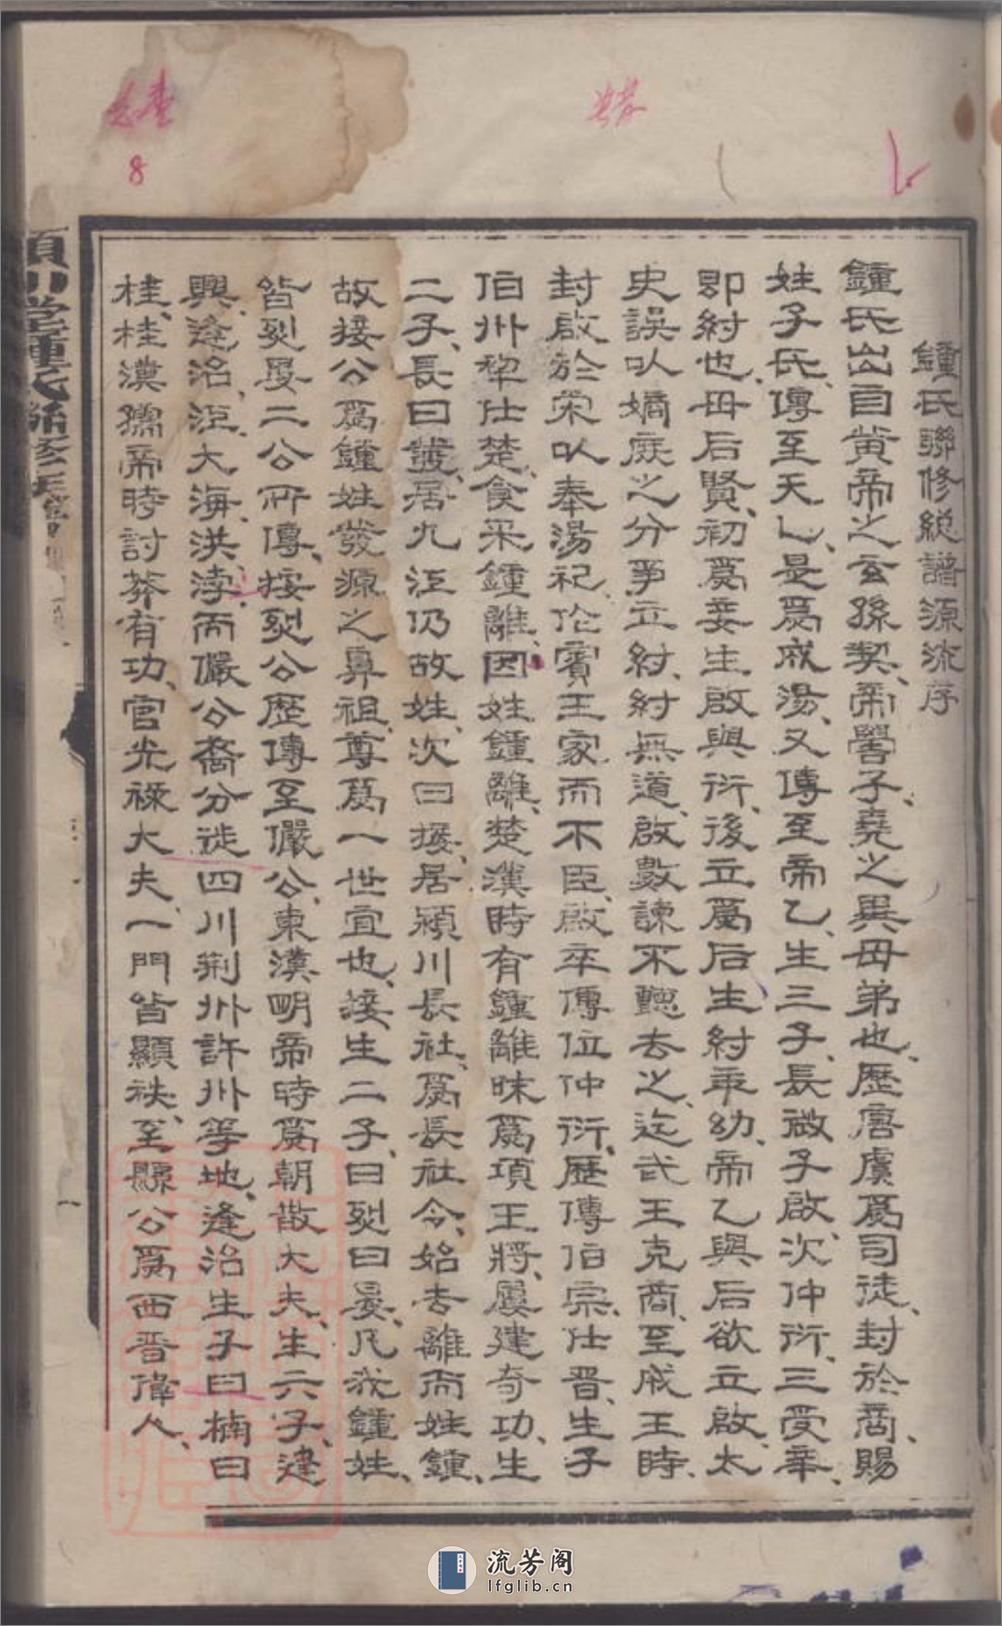 鍾氏聯修總譜源流序
鍾氏出自黃帝之玄孫契、帝嚳子、堯之異母弟也、歷唐虞爲司徒、封於商、賜
姓子氏、傳至天乙、是爲成湯、又傳至帝乙、生三子、長微子啟、次仲衍、三受辛、
即紂也、母后賢、初爲妾生啟與衍、後立爲后生紂、年幼、帝乙與后欲立啟、太
史誤以嫡庶之分爭立紂、紂無道、啟數諫不聽去之、迄武王克商、至成王時、
封啟於宋以奉湯祀、伦賓王家而不臣、啟卒傳位仲衍、歷傳伯宗、仕晉、生子
伯州犂仕楚、食采鍾離、因姓鍾離、楚漢時有鍾離昧爲項王將、屢建奇功、生
二子、長曰發、居九江仍故姓、次曰接、居潁川長社、爲長社令、始去離而姓鍾、
故接公爲鍾姓發源之鼻祖、尊爲一世宜也、接生二子、曰烈曰晏、凡我鍾姓、
皆烈晏二公所傳、按烈公歷傳至儼公、東漢明帝時爲朝散大夫、生六子、建
興、逢治、江大海洪浡、而儼公裔分徙四川荊州許州等地、逢治生子曰楠曰
桂、桂漢孺帝時討莽有功、官光祿大夫、一門皆顯秩、至繇公爲西晉偉人、
堂鍾氏聯修
一
8
流芳阁
lfglib.cn